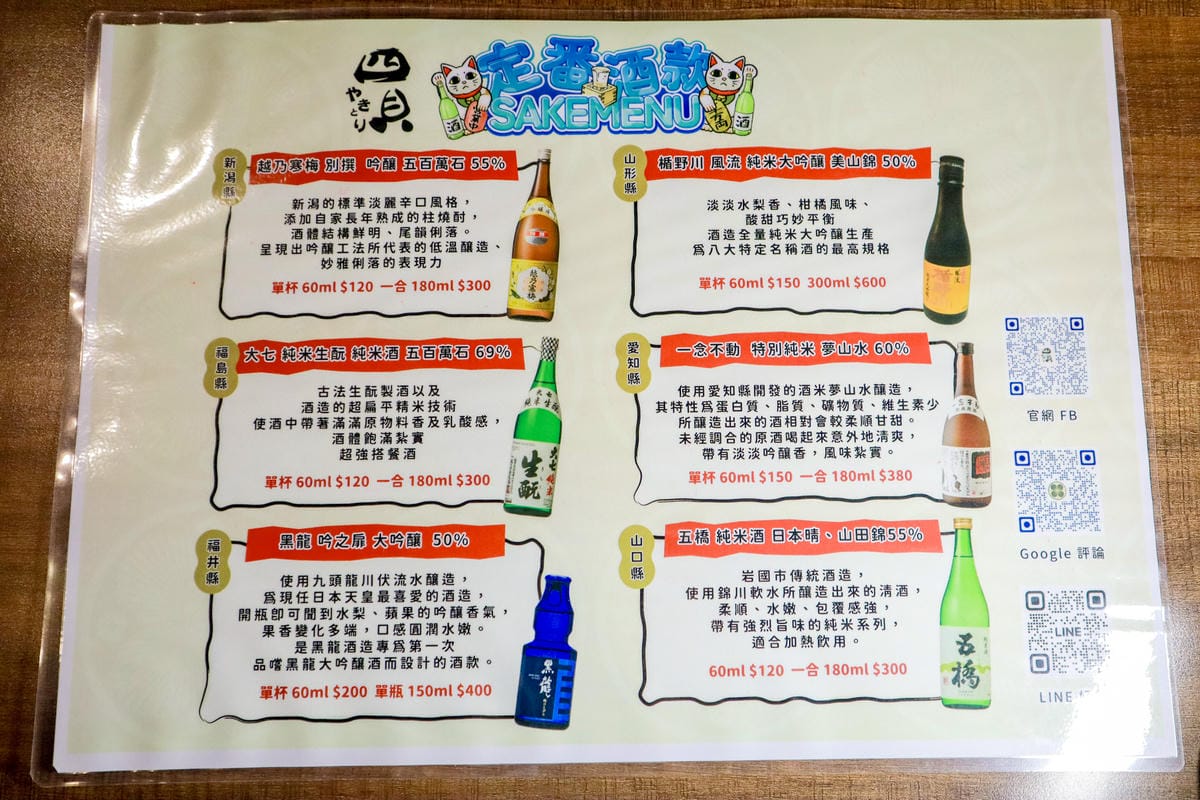 四貝
やきとり
定番酒款
SAKEMENU
酒
酒
新潟縣
越乃寒梅 別撰 吟釀 五百萬石 55%
新潟的標準淡麗辛口風格，
添加自家長年熟成的柱燒酎，
酒體結構鮮明、尾韻俐落。
呈現出吟釀工法所代表的低溫釀造、
妙雅俐落的表現力
單杯 60ml $120 一合 180ml $300
越乃寒梅
山形縣
楯野川 風流 純米大吟釀 美山錦 50%
淡淡水梨香、柑橘風味、
酸甜巧妙平衡
酒造全量純米大吟釀生產
為八大特定名稱酒的最高規格
單杯 60ml $150 300ml $600
福島縣
大七 純米生酛 純米酒 五百萬石 69%
古法生酛製酒以及
酒造的超扁平精米技術
使酒中帶著滿滿原物料香及乳酸感，
酒體飽滿紮實
超強搭餐酒
單杯 60ml $120 一合 180ml $300
大七
生酛
愛知縣
一念不動 特別純米 夢山水 60%
使用愛知縣開發的酒米夢山水釀造，
其特性為蛋白質、脂質、礦物質、維生素少
所釀造出來的酒相對會較柔順甘甜。
未經調合的原酒喝起來意外地清爽，
帶有淡淡吟釀香，風味紮實。
單杯 60ml $150 一合 180ml $380
福井縣
黑龍 吟之扉 大吟釀 50%
使用九頭龍川伏流水釀造，
為現任日本天皇最喜愛的酒造，
開瓶卽可聞到水梨、蘋果的吟釀香氣，
果香變化多端，口感圓潤水嫩。
是黑龍酒造專為第一次
品嚐黑龍大吟釀酒而設計的酒款。
單杯 60ml $200 單瓶 150ml $400
黒龍
山口縣
五橋 純米酒 日本晴、山田錦55%
岩國市傳統酒造，
使用錦川軟水所釀造出來的清酒，
柔順、水嫩、包覆感強，
帶有強烈旨味的純米系列，
適合加熱飲用。
60ml $120 一合 180ml $300
五橋
官網 FB
Google 評論
LINE
LINE